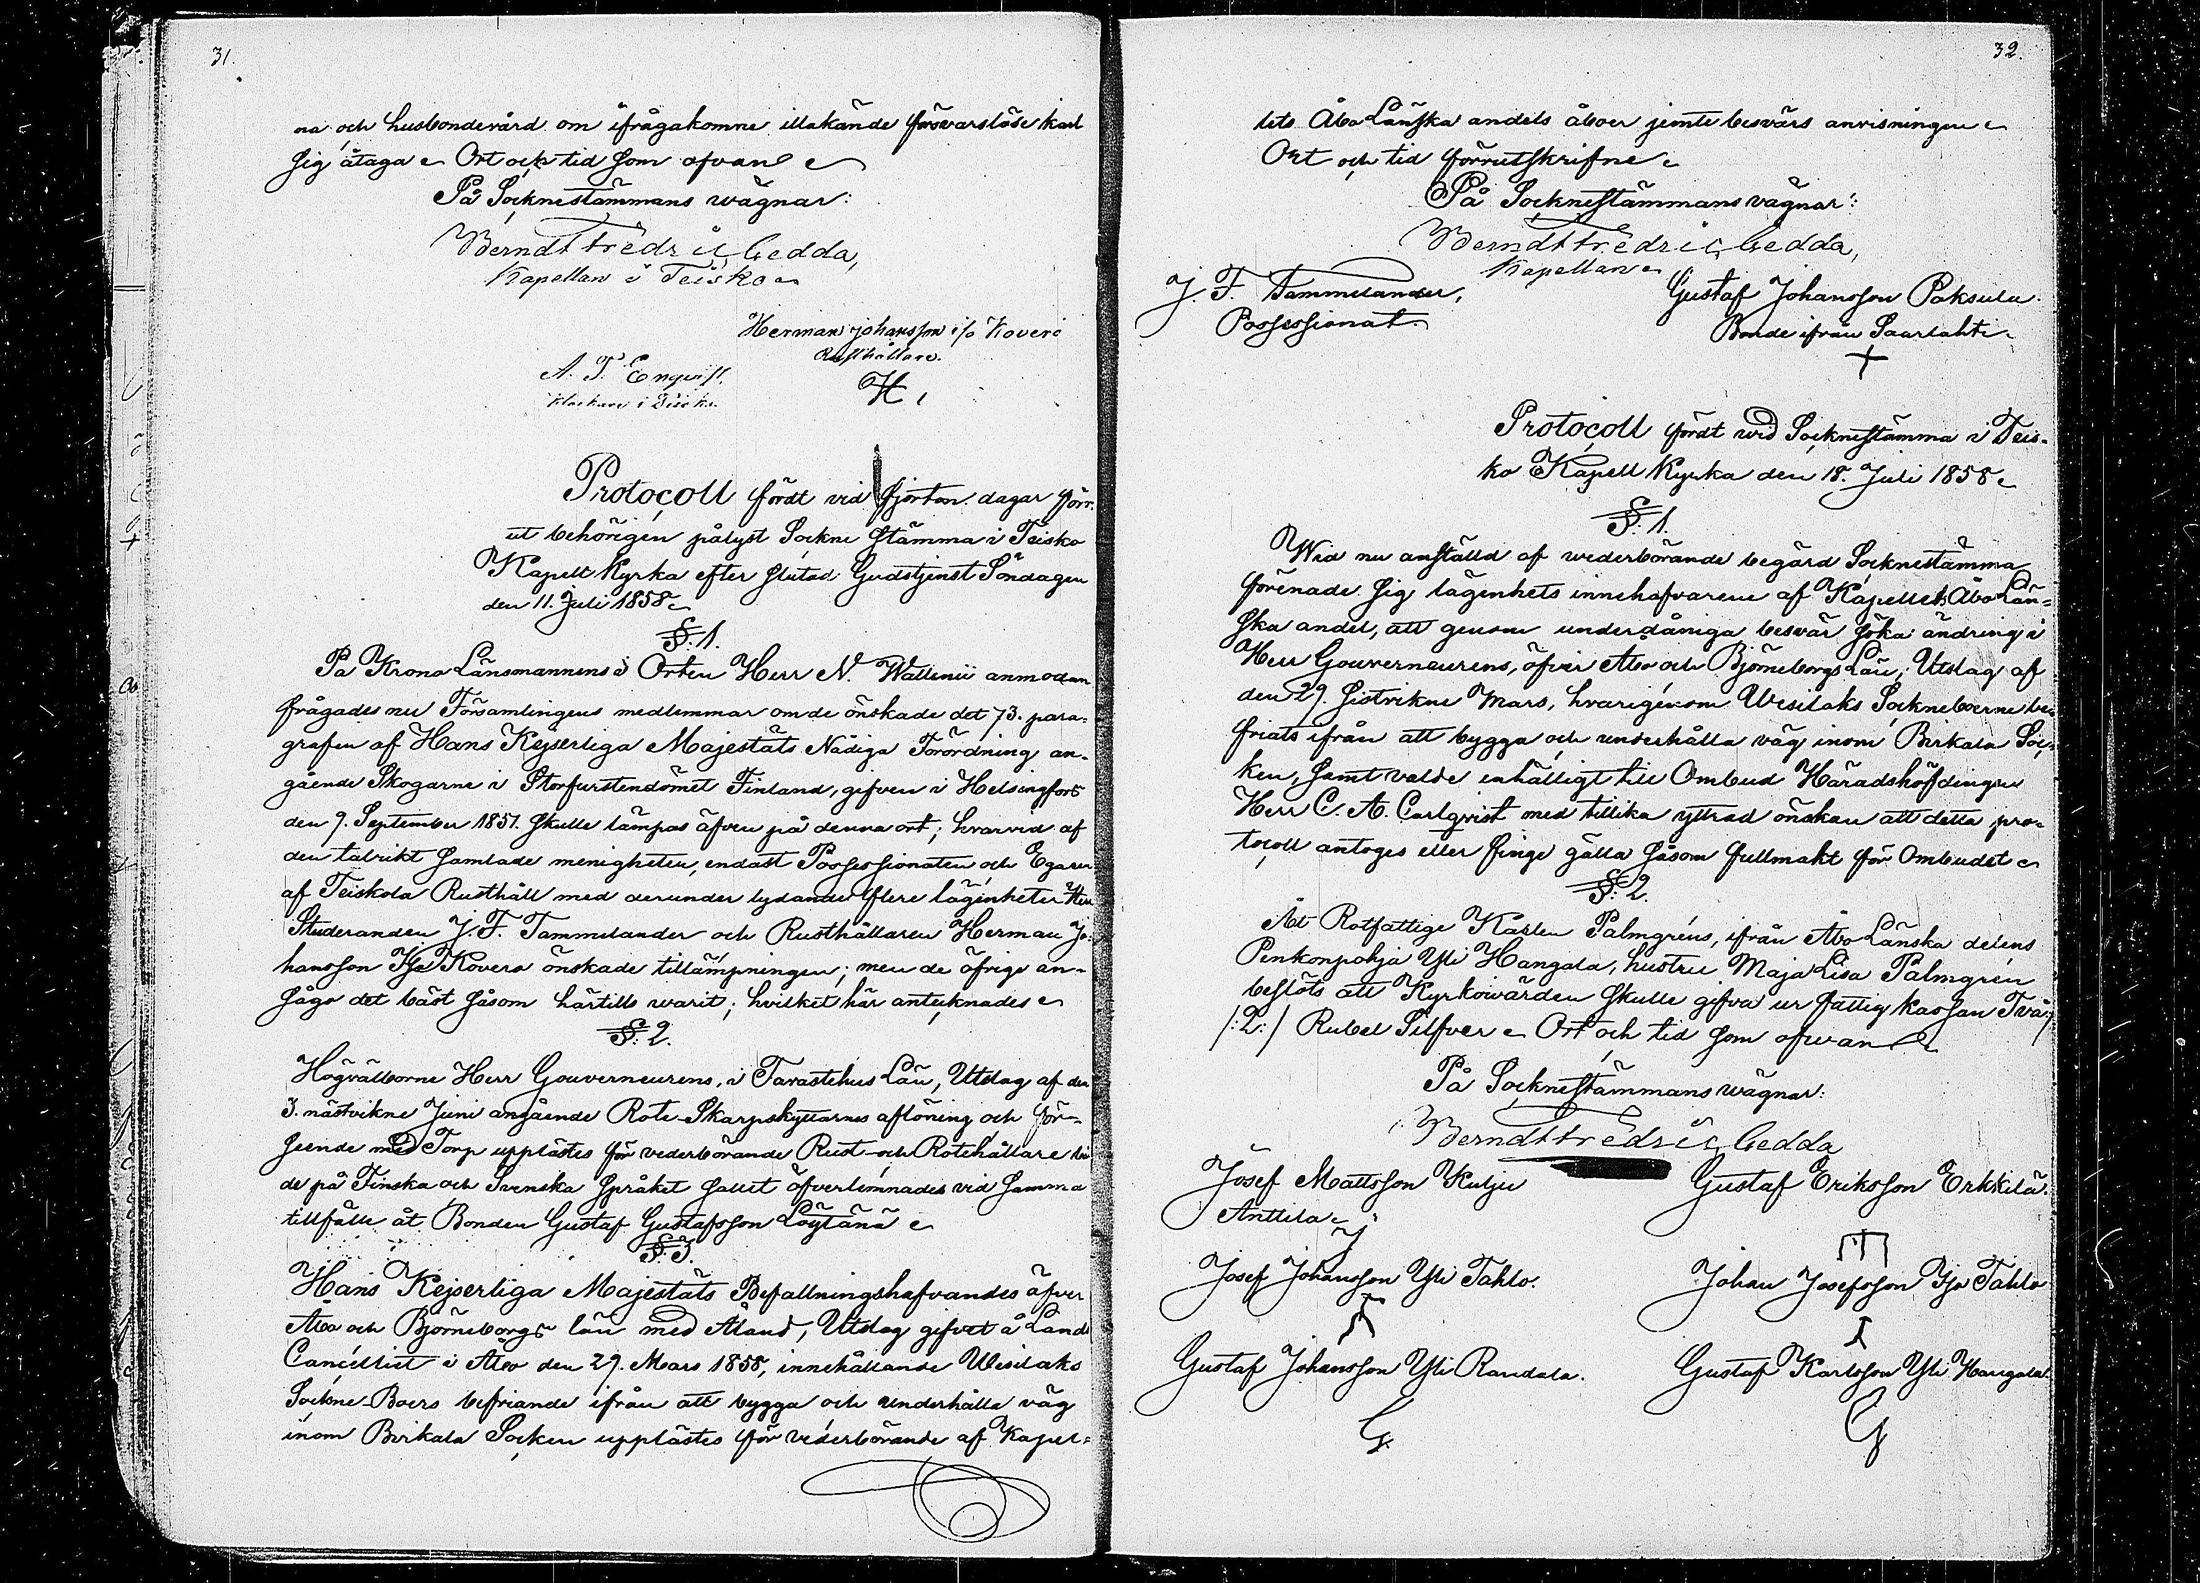 31.
na och husbondevård om ifrågakomne illakände försvarslöse karl
sig åtaga. Ort och tid som ofvan
På Socknestämmans wägnar:
Berndt Fredric Gedda,
Kapellan i Teisko
Herman Johansson i/o Kovero
Rusthållare.
A. T. Enqvist,
Klockare i Teisko.
H,
Protocoll fördt vid fjorton dagar förr-
ut behörigen pålyst Sockne Stämma i Teisko
Kapell Kyrka efter slutad Gudstjenst Söndagen
den 11. Juli 1858
§. 1.
På Krono Länsmannens i Orten Herr N. Wallenii anmodan
frågades nu Församlingens medlemmar om de önskade det 73. para-
grafen af Hans Kejserliga Majestäts Nådiga Förordning an-
gående Skogarne i Storfurstendömet Finland, gifven i Helsingfors
den 9. September 1851. skulle lämpas äfven på denna ort; hvarvid af
den talrikt samlade menigheten, endast Possessionaten och Egaren
af Teiskola Rusthåll med derunder lydande flere lägenheter Herr
Studeranden J. F. Tammelander och Rusthållaren Herman Jo-
hansson Iso Kovero önskade tillämpningen; men de öfrige an-
sågo det bäst såsom härtills warit; hvilket här antecknades
§. 2.
Högvälborne Herr Gouverneurens, i Tavastehus Län, Utslag af den
3. nästvikne Juni angående Rote-Skarpskyttarnes aflöning och för-
seende med Torp upplästes för vederbörande Rust- och Rotehållare bå
de på Finska och Svenska språket samt öfverlemnades vid samma
tillfälle åt Bonden Gustaf Gustafsson Löytänä
§. 3.
Hans Kejserliga Majestäts Befallningshafvandes öfver
Åbo och Björneborgs län med Åland, Utslag gifvet å Lands
Cancelliet i Åbo den 29. Mars 1858, innehållande Wesilaks
Sockne-Boers befriande ifrån att bygga och underhålla väg
inom Birkala Socken upplästes för vederbörande af Kapel-
32.
lets Åbo Länska andels åboer jemte besvärs anvisningen
Ort och tid förrutskrifne
På Sockne Stämmans vägnar:
Berndt Fredric Gedda,
Kapellan
J. F. Tammelander,
Possessionat.
Gustaf Johansson Paksula.
Bonde ifrån Saarlahti
Protocoll fördt wid Sockne Stämma i Teis-
ko Kapell Kyrka den 18. Juli 1858
§. 1.
Wid nu anställd af wederbörande begärd Sockne stämma
förenade sig lägenhets innehafvarene af Kapellets Åbo Län-
ska andel, att genom underdåniga besvär söka ändring i
Herr Gouverneurens, öfver Åbo och Björneborgs Län, Utslag af
den 29. sistvikne Mars, hvarigenom Wesilaks Sockneboerne be-
friats ifrån att bygga och underhålla väg inom Birkala Soc-
ken, samt valde enhälligt till Ombud Häradshöfdingen
Herr C. A. Carlqvist med tillika yttrad önskan att detta pro-
tocoll antoges eller finge gälla såsom fullmakt för Ombudet
§. 2.
Åt Rotfattige Karlen Palmgréns, ifrån Åbo Länska delens
Penkonpohja Yli Hangala, hustru Maja Lisa Palmgrén
beslöts att Kyrkowärden skulle gifva ur fattig kassan Två
/:2:/ Rubel Silfver. Ort och tid som ofwan
På Sockne Stämmans wägnar:
Berndt Fredric Gedda
Josef Mattsson Kulju
Anttila
Gustaf Eriksson Erkkilä.
Josef Johansson Yli Tahlo.
Johan Josefsson Iso Tahlo
Gustaf Johansson Yli Randala.
Gustaf Karlsson Yli Hangala.
G.
G